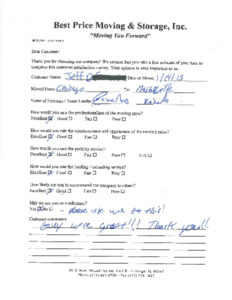 Best Price Moving & Storage, Inc.
"Moving You Forward"
Dear Customer:
Thank you for choosing our company! We request that you take a few minutes of your time to
complete this customer satisfaction survey. Your opinion is very important to us.
Customer Name: Jeff Date of Move: 1/24/13
Moved From: Chicago To
Name of Foreman / Team Leader
How would you rate the professionalism of the moving crew?
Excellent ☒ Good ☐ Fair ☐ Poor ☐
How would you rate the courteousness and appearance of the moving crew?
Excellent ☒ Good ☐ Fair ☐ Poor ☐
How would you rate the packing service?
Excellent ☐ Good ☐ Fair ☐ Poor ☐ N/A ☐
How would you rate the loading / unloading service?
Excellent ☒ Good ☐ Fair ☐ Poor ☐
How likely are you to recommend our company to others?
Excellent ☒ Good ☐ Fair ☐ Poor ☐
May we use you as a reference?
Yes ☒ No ☐ - please use me for this!
Customer comments:
Guys were great!!! Thank you!!